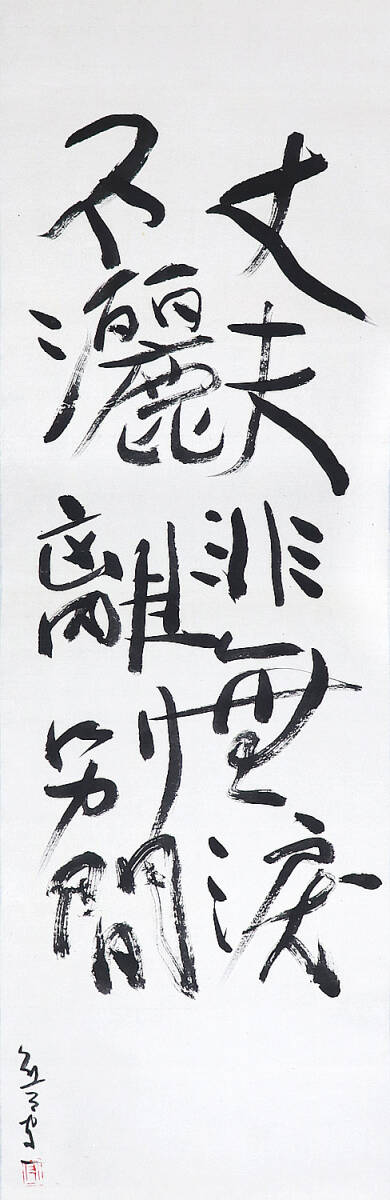 丈夫非無涙
不灑離別間